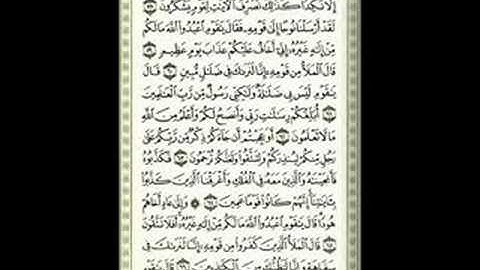 إِلَّا نَكِدًا كَذَٰلِكَ نُصَرِّفُ الْآيَاتِ لِقَوْمٍ يَشْكُرُونَ ٥٨
لَقَدْ أَرْسَلْنَا نُوحًا إِلَىٰ قَوْمِهِ فَقَالَ يَا قَوْمِ اعْبُدُوا اللَّهَ مَا لَكُم
مِّنْ إِلَٰهٍ غَيْرُهُ إِنِّي أَخَافُ عَلَيْكُمْ عَذَابَ يَوْمٍ عَظِيمٍ ٥٩
قَالَ الْمَلَأُ مِن قَوْمِهِ إِنَّا لَنَرَاكَ فِي ضَلَالٍ مُّبِينٍ ٦٠ قَالَ
يَا قَوْمِ لَيْسَ بِي ضَلَالَةٌ وَلَٰكِنِّي رَسُولٌ مِّن رَّبِّ الْعَالَمِينَ
٦١ أُبَلِّغُكُمْ رِسَالَاتِ رَبِّي وَأَنصَحُ لَكُمْ وَأَعْلَمُ مِنَ اللَّهِ
مَا لَا تَعْلَمُونَ ٦٢ أَوَعَجِبْتُمْ أَن جَاءَكُمْ ذِكْرٌ مِّن رَّبِّكُمْ عَلَىٰ
رَجُلٍ مِّنكُمْ لِيُنذِرَكُمْ وَلِتَتَّقُوا وَلَعَلَّكُمْ تُرْحَمُونَ ٦٣ فَكَذَّبُوهُ
فَأَنجَيْنَاهُ وَالَّذِينَ مَعَهُ فِي الْفُلْكِ وَأَغْرَقْنَا الَّذِينَ كَذَّبُوا
بِآيَاتِنَا إِنَّهُمْ كَانُوا قَوْمًا عَمِينَ ٦٤ ۞ وَإِلَىٰ عَادٍ أَخَاهُمْ
هُودًا قَالَ يَا قَوْمِ اعْبُدُوا اللَّهَ مَا لَكُم مِّنْ إِلَٰهٍ غَيْرُهُ أَفَلَا تَتَّقُونَ
٦٥ قَالَ الْمَلَأُ الَّذِينَ كَفَرُوا مِن قَوْمِهِ إِنَّا لَنَرَاكَ فِي
سَفَاهَةٍ وَإِنَّا لَنَظُنُّكَ مِنَ الْكَاذِبِينَ ٦٦ قَالَ يَا قَوْمِ